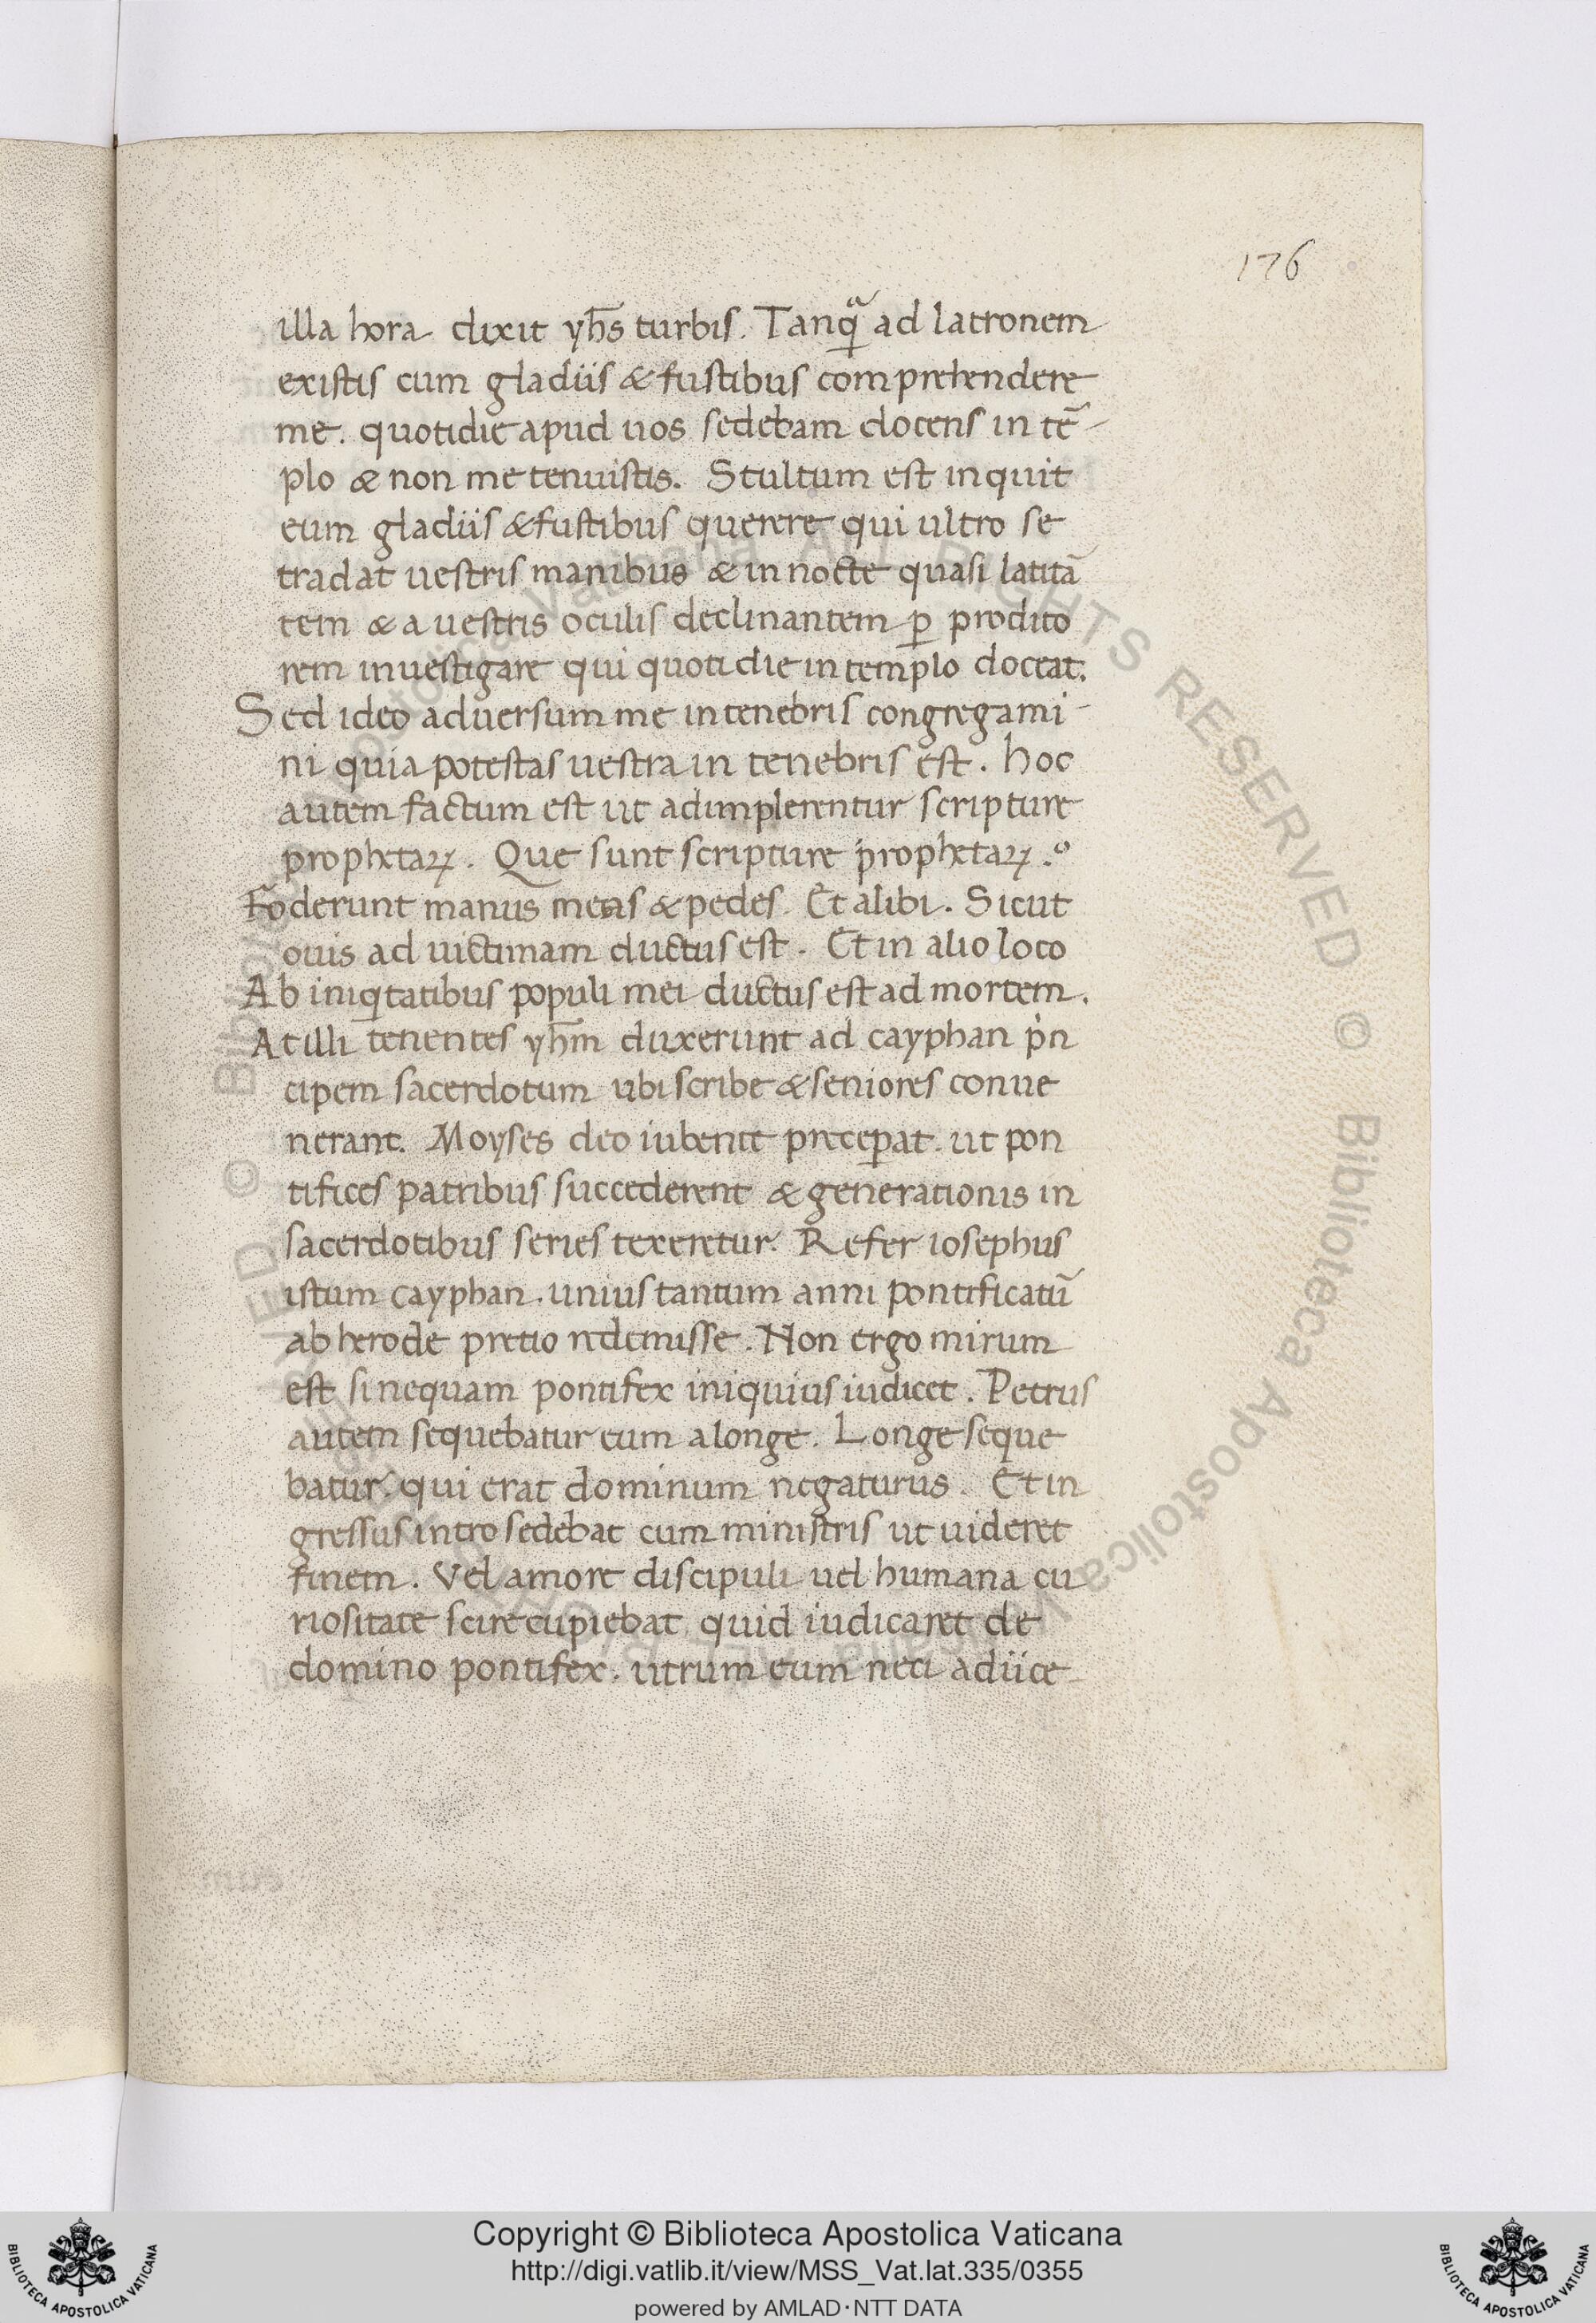 176
illa hora dixit yh̅s turbis. Tanqͣ ad latronem
existis cum gladiis & fustibus comprehendere
me. quotidie apud uos sedebam docens in te̅
plo & non me tenuistis. Stultum est inquit
eum gladiis & fustibus querere qui ultro se
tradat uestris manibus & in nocte quasi latita̅
tem & a uestris oculis declinantem ꝑ prodito
rem inuestigare qui quotidie in templo doceat.
Sed ideo aduersum me in tenebris congregami
ni quia potestas uestra in tenebris est. hoc
autem factum est ut adimplerentur scripture
prophetaꝝ. Que sunt scripture prophetaꝝ.
Foderunt manus meas & pedes. Et alibi. Sicut
ouis ad uictimam ductus est. Et in alio loco
Ab iniqͥtatibus populi mei ductus est ad mortem.
At illi tenentes yh̅m duxerunt ad cayphan pͥn
cipem sacerdotum ubi scribe & seniores conue
nerant. Moyses deo iubente preceꝑat. ut pon
tifices patribus succederent & generationis in
sacerdotibus series texeretur. Refer iosephus
istum cayphan. unius tantum anni pontificatu̅
ab herode pretio redemisse. Non ergo mirum
est si nequam pontifex iniquius iudicet. Petrus
autem sequebatur eum a longe. Longe seque
batur. qui erat dominum negaturus. Et in
gressus intro sedebat cum ministris ut uideret
finem. Vel amore discipuli uel humana cu
riositate scire cupiebat quid iudicaret de
domino pontifex. utrum eum neci adiice
Copyright © Biblioteca Apostolica Vaticana
http://digi.vatlib.it/view/MSS_Vat.lat.335/0355
powered by AMLAD·NTT DATA